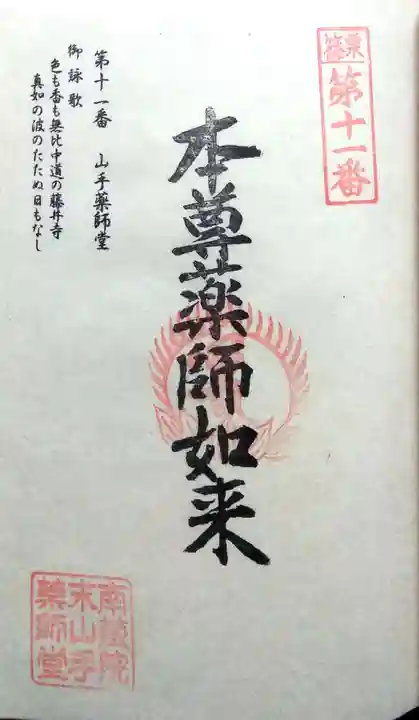 篠栗
第十一番
本尊薬師如来
第十一番 山手薬師堂
御詠歌
色も香も無比中道の藤井寺
真如の波のたたぬ日もなし
南蔵院
末山手
薬師堂